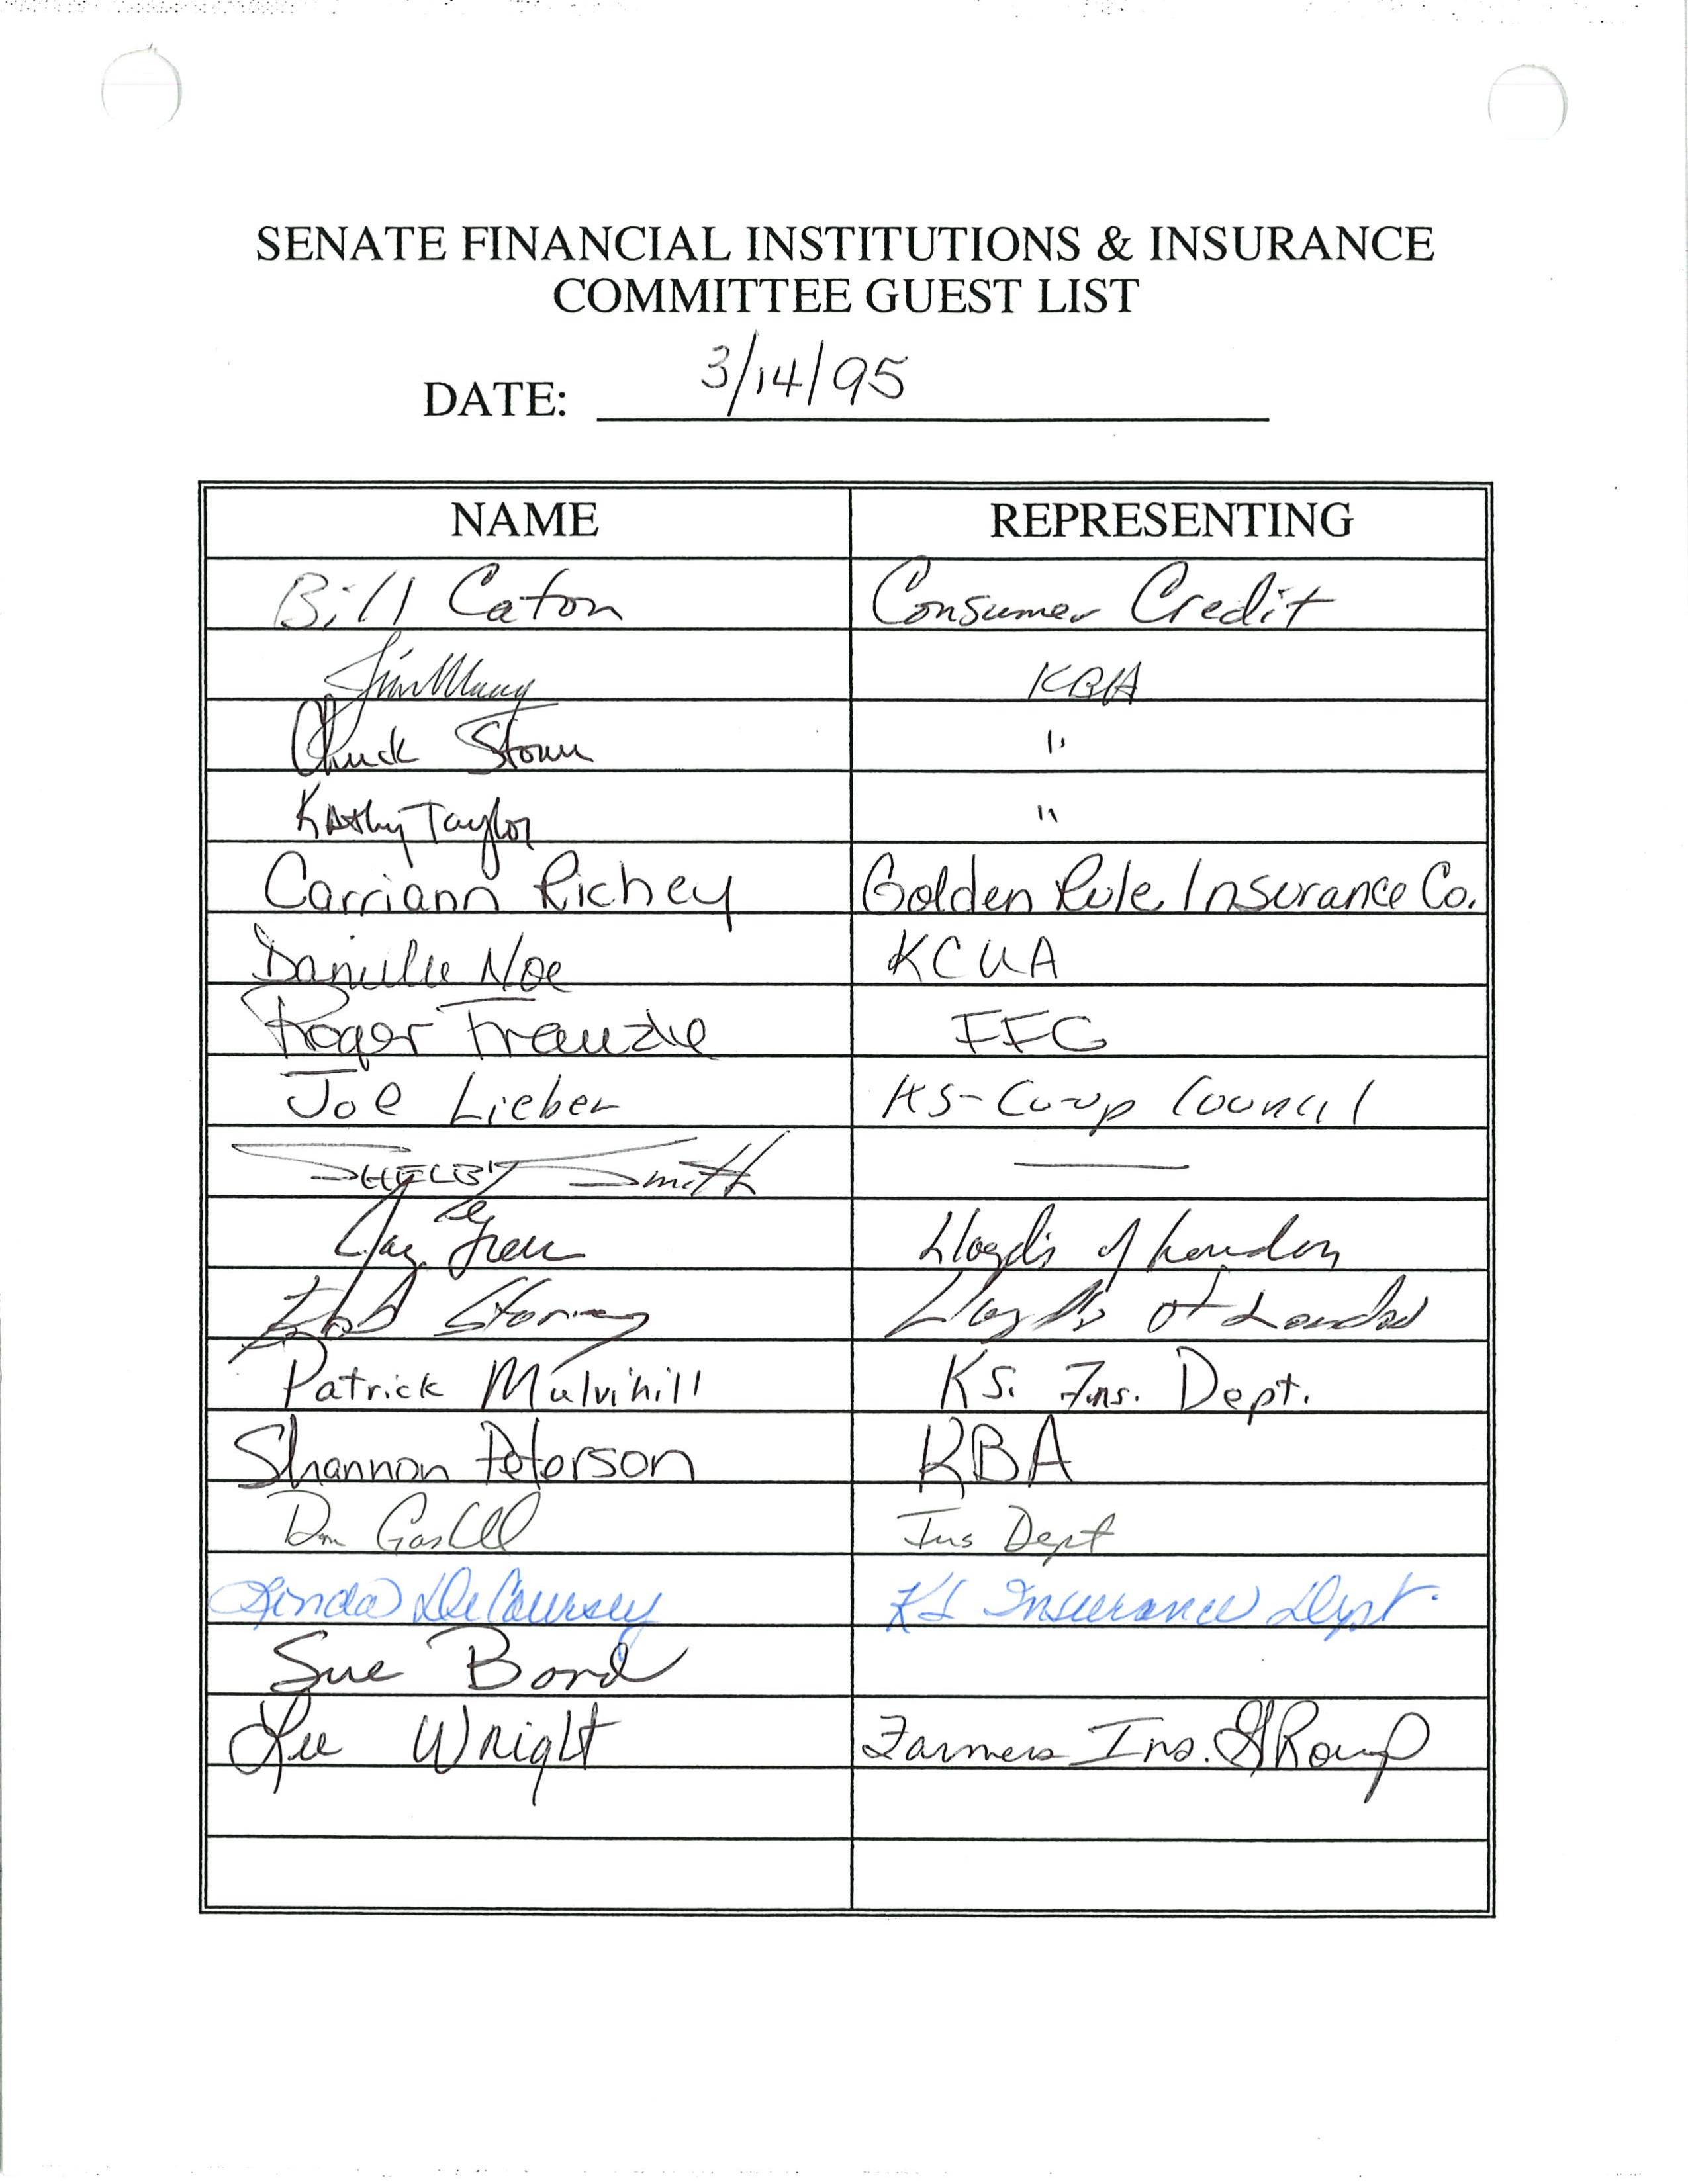 SENATE FINANCIAL INSTITUTIONS & INSURANCE
COMMITTEE GUEST LIST
DATE: 3/14/95
NAME REPRESENTING
Bill Caton Consumer Credit
Jim Maag KBA
Chuck Stones "
Kathy Taylor "
Carriann Richey Golden Rule Insurance Co.
Danielle Noe KCUA
Roger Franzke FFG
Joe Lieber KS-Co-op Council
SHELBY Smith —
Lloyd's of London
Bob Lloyds of London
Patrick Mulvihill Ks. Ins. Dept.
Shannon Peterson KBA
Gaskill Ins Dept
Linda DeCoursey KS Insurance Dept.
Sue Bond
Lee Wright Farmers Ins. GRoup